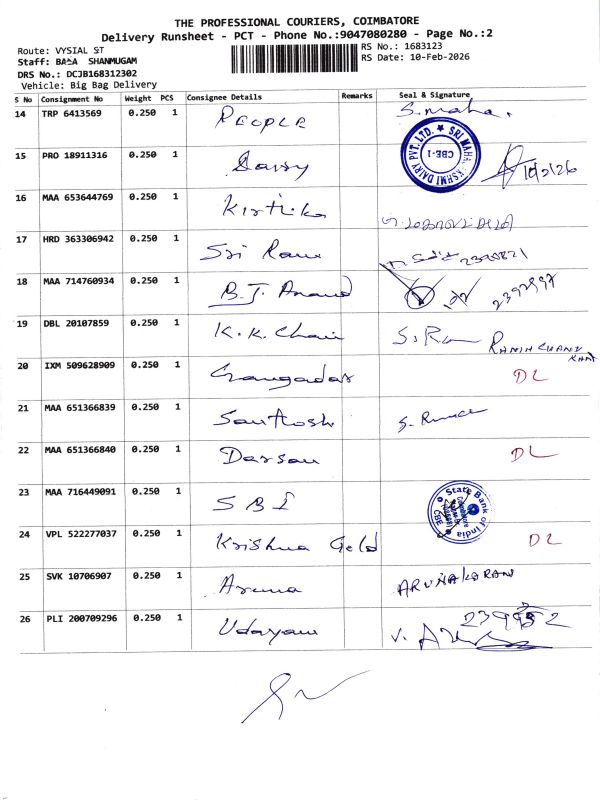 THE PROFESSIONAL COURIERS, COIMBATORE
Delivery Runsheet - PCT - Phone No.:9047080280 - Page No.:2
Route: VYSIAL ST
RS No.: 1683123
Staff: BALA SHANMUGAM
RS Date: 10-Feb-2026
DRS No.: DCJB168312302
Vehicle: Big Bag Delivery
S No Consignment No Weight PCS Consignee Details Remarks Seal & Signature
14 TRP 6413569 0.250 1 PEOPLE S. maha.
15 PRO 18911316 0.250 1 SRI MAHA KSHMI DAIRY PVT. LTD. CBE-1 10/2/26
16 MAA 653644769 0.250 1 Kirthika
17 HRD 363306942 0.250 1 Sri Ram
18 MAA 714760934 0.250 1 B.J. Anand
19 DBL 20107859 0.250 1 K.K. Chair S. Ram
20 IXM 509628909 0.250 1 Gangadar DL
21 MAA 651366839 0.250 1 Santhosh
22 MAA 651366840 0.250 1 Darsan DL
23 MAA 716449091 0.250 1 SBI State Bank of India CBE
24 VPL 522277037 0.250 1 Krishna Gold DL
25 SVK 10706907 0.250 1 Aruna ARUNAKARAN
26 PLI 200709296 0.250 1 Udayam